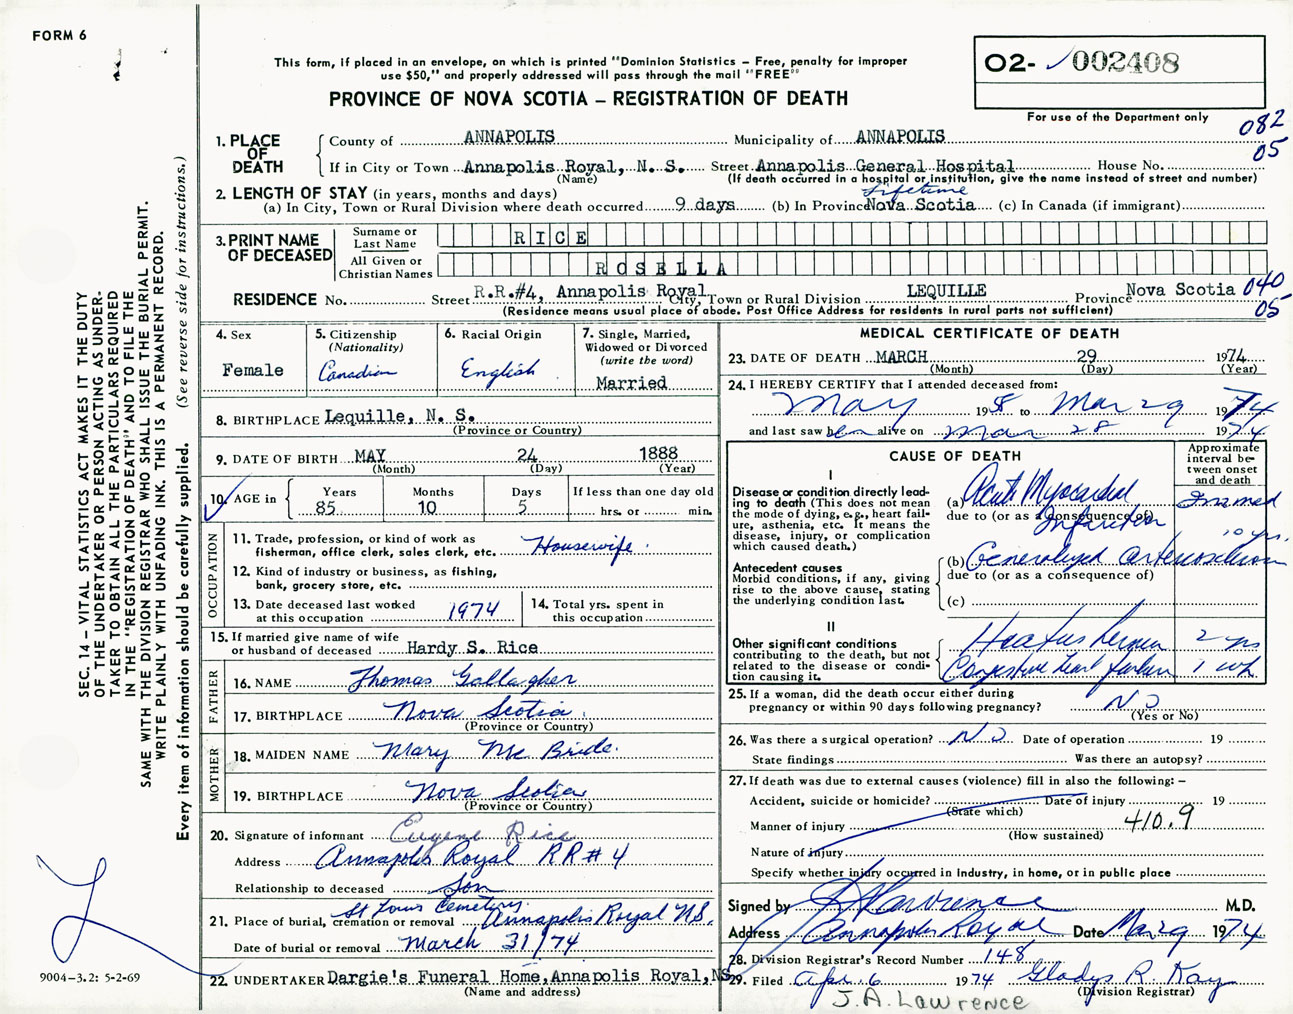 FORM 6
This form, if placed in an envelope, on which is printed "Dominion Statistics – Free, penalty for improper
use $50," and properly addressed will pass through the mail "FREE"
PROVINCE OF NOVA SCOTIA – REGISTRATION OF DEATH
O2- 002408
For use of the Department only
082
05
1. PLACE OF DEATH
County of ANNAPOLIS Municipality of ANNAPOLIS
If in City or Town Annapolis Royal, N. S. Street Annapolis General Hospital House No.
(Name) (If death occurred in a hospital or institution, give the name instead of street and number)
2. LENGTH OF STAY (in years, months and days) Lifetime
(a) In City, Town or Rural Division where death occurred 9 days (b) In Province Nova Scotia (c) In Canada (if immigrant)
3. PRINT NAME OF DECEASED
Surname or Last Name RICE
All Given or Christian Names ROSELLA
RESIDENCE No. Street R.R.#4, Annapolis Royal City, Town or Rural Division LEQUILLE Province Nova Scotia 040
(Residence means usual place of abode. Post Office Address for residents in rural parts not sufficient) 05
4. Sex
Female
5. Citizenship
(Nationality)
Canadian
6. Racial Origin
English
7. Single, Married,
Widowed or Divorced
(write the word)
Married
8. BIRTHPLACE Lequille, N. S.
(Province or Country)
9. DATE OF BIRTH MAY 24 1888
(Month) (Day) (Year)
10. AGE in Years Months Days If less than one day old
85 10 5 hrs. or min.
OCCUPATION
11. Trade, profession, or kind of work as
fisherman, office clerk, sales clerk, etc. Housewife.
12. Kind of industry or business, as fishing,
bank, grocery store, etc.
13. Date deceased last worked
at this occupation 1974
14. Total yrs. spent in
this occupation
15. If married give name of wife
or husband of deceased Hardy S. Rice
FATHER
16. NAME Thomas Gallagher
17. BIRTHPLACE Nova Scotia.
(Province or Country)
MOTHER
18. MAIDEN NAME Mary McBride.
19. BIRTHPLACE Nova Scotia
(Province or Country)
20. Signature of informant Eugene Rice
Address Annapolis Royal RR#4
Relationship to deceased Son
21. Place of burial, cremation or removal St Louis Cemetery. Annapolis Royal NS.
Date of burial or removal March 31/74
22. UNDERTAKER Dargie's Funeral Home, Annapolis Royal, NS
(Name and address)
MEDICAL CERTIFICATE OF DEATH
23. DATE OF DEATH MARCH 29 1974
(Month) (Day) (Year)
24. I HEREBY CERTIFY that I attended deceased from:
May 19 to Mar 29 1974
and last saw her alive on Mar 28 1974
CAUSE OF DEATH
Approximate
interval be-
tween onset
and death
I
Disease or condition directly lead-
ing to death (This does not mean
the mode of dying, e.g., heart fail-
ure, asthenia, etc. It means the
disease, injury, or complication
which caused death.)
(a) Acute Myocardial Immed
due to (or as a consequence of)
Infarction
10 yrs.
Antecedent causes
Morbid conditions, if any, giving
rise to the above cause, stating
the underlying condition last.
(b) Generalized arteriosclerosis
due to (or as a consequence of)
(c)
II
Other significant conditions
contributing to the death, but not
related to the disease or condi-
tion causing it.
Heatus hernia 2 yrs
Congestive heart failure 1 wk
25. If a woman, did the death occur either during
pregnancy or within 90 days following pregnancy? NO
(Yes or No)
26. Was there a surgical operation? NO Date of operation 19
State findings Was there an autopsy?
27. If death was due to external causes (violence) fill in also the following: –
Accident, suicide or homicide? Date of injury 19
(State which)
Manner of injury 410.9
(How sustained)
Nature of injury
Specify whether injury occurred in Industry, in home, or in public place
Signed by Lawrence M.D.
Address Annapolis Royal Date Mar 29 1974
28. Division Registrar's Record Number 148
29. Filed Apr. 6 1974 Gladys R. Kay
(Division Registrar)
J.A. Lawrence
SEC. 14 – VITAL STATISTICS ACT MAKES IT THE DUTY
OF THE UNDERTAKER OR PERSON ACTING AS UNDER-
TAKER TO OBTAIN ALL THE PARTICULARS REQUIRED
IN THE "REGISTRATION OF DEATH" AND TO FILE THE
SAME WITH THE DIVISION REGISTRAR WHO SHALL ISSUE THE BURIAL PERMIT.
WRITE PLAINLY WITH UNFADING INK. THIS IS A PERMANENT RECORD.
Every item of information should be carefully supplied. (See reverse side for instructions.)
9004–3.2: 5-2-69